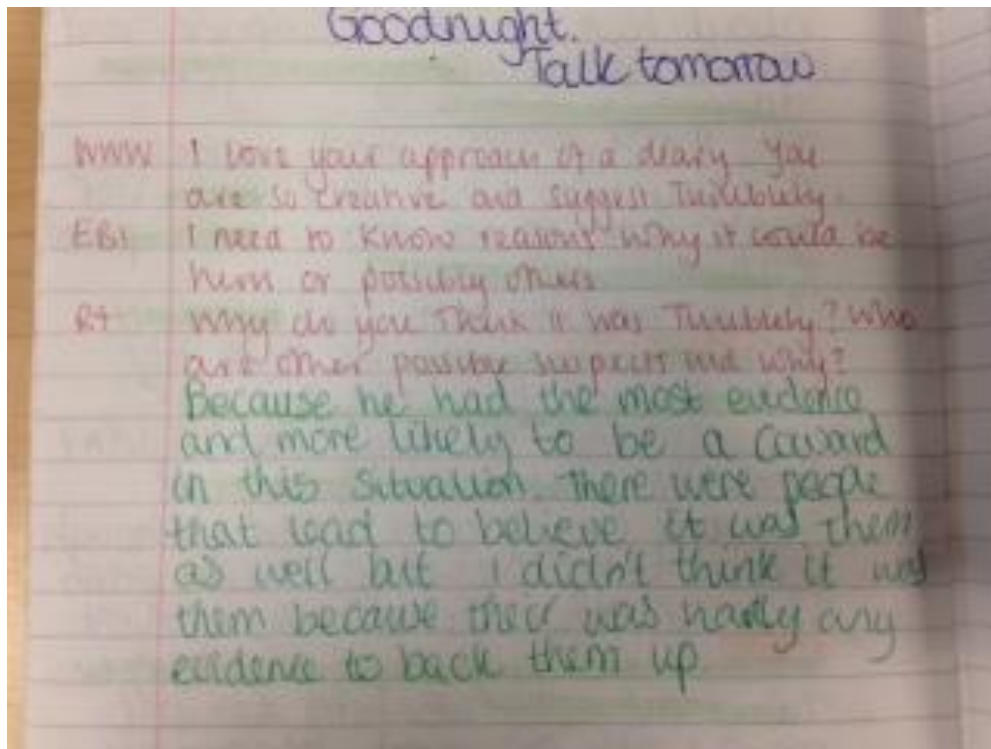 Goodnight.
Talk tomorrow
WWW I love your approach of a diary You
are so creative and suggest
EBI I need to know reasons why it could be
him or possibly others
Why do you think it was ? Who
are other possible suspects and why?
Because he had the most evidence
and more likely to be a coward
in this situation. There were people
that lead to believe it was them
as well but I didn't think it was
them because their was hardly any
evidence to back them up